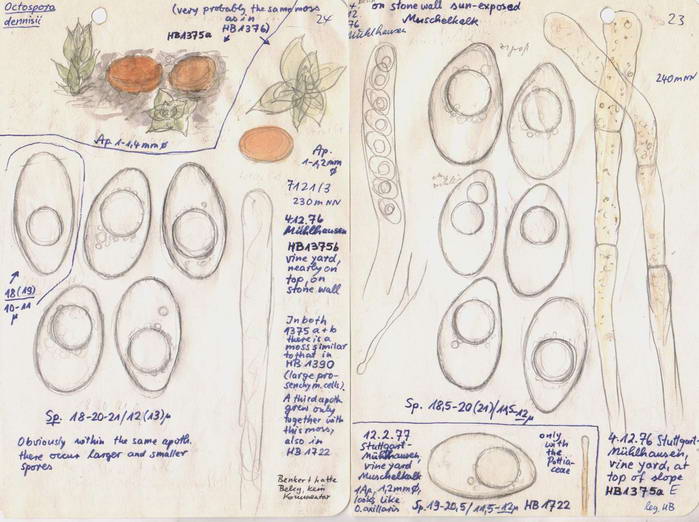 Octospora
dennisii
(very probably the same moss
as in
HB1376)
HB1375a
24
Ap. 1-1,4mmø
Ap.
1-1,2mm
ø
7121/3
230mNN
4.12.76
Mühlhausen
HB1375b
vine yard,
nearly on
top, on
stone wall
18(19)
10-11
μ
In both
1375 a+b
there is a
moss similar
to that in
HB 1390
(large pro-
senchym. cells).
A third apoth.
grew only
together with
this moss,
also in
HB 1722
Sp. 18-20-21/12(13)μ
Obviously within the same apoth.
there occur larger and smaller
spores
Benkert hatte
Beleg, kein
Kommentar
4.
12.
76
Mühlhausen
on stone wall sun-exposed
Muschelkalk
23
240mNN
Sp. 18,5-20(21)/11,5-12μ
12.2.77
Stuttgart-
Mühlhausen,
vine yard
Muschelkalk
1Ap, 1,2mmø,
looks like
O.axillaris
Sp.19-20,5/11,5-12μ HB 1722
only
with
the
Pottia-
ceae
4.12.76 Stuttgart-
Mühlhausen,
vine yard, at
top of slope
HB1375a E
leg. HB